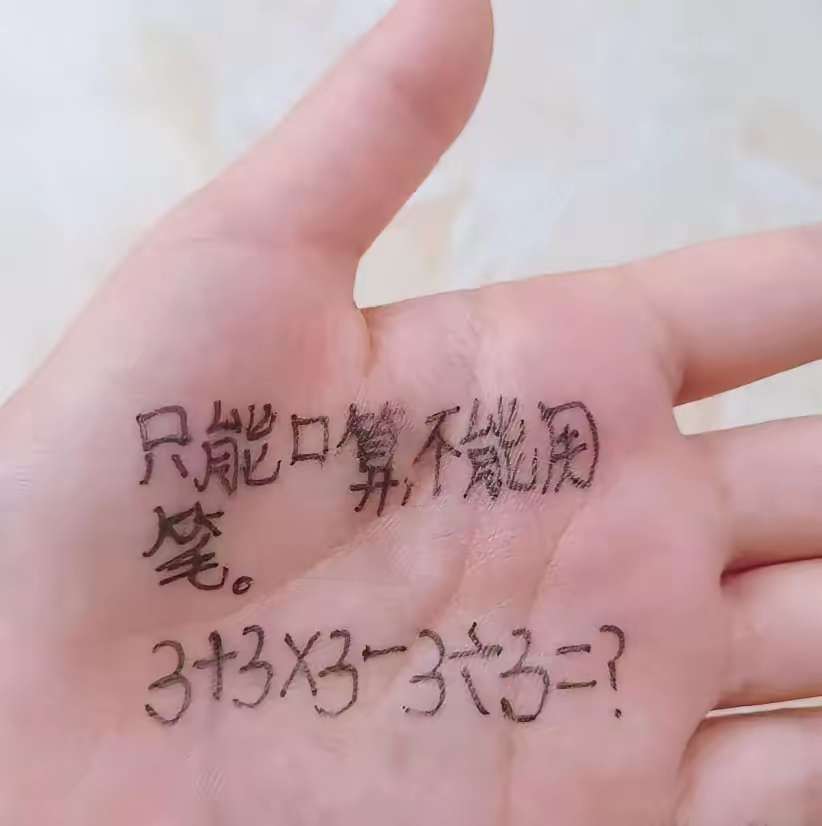 只能口算,不能用
笔。
3+3×3-3÷3=?